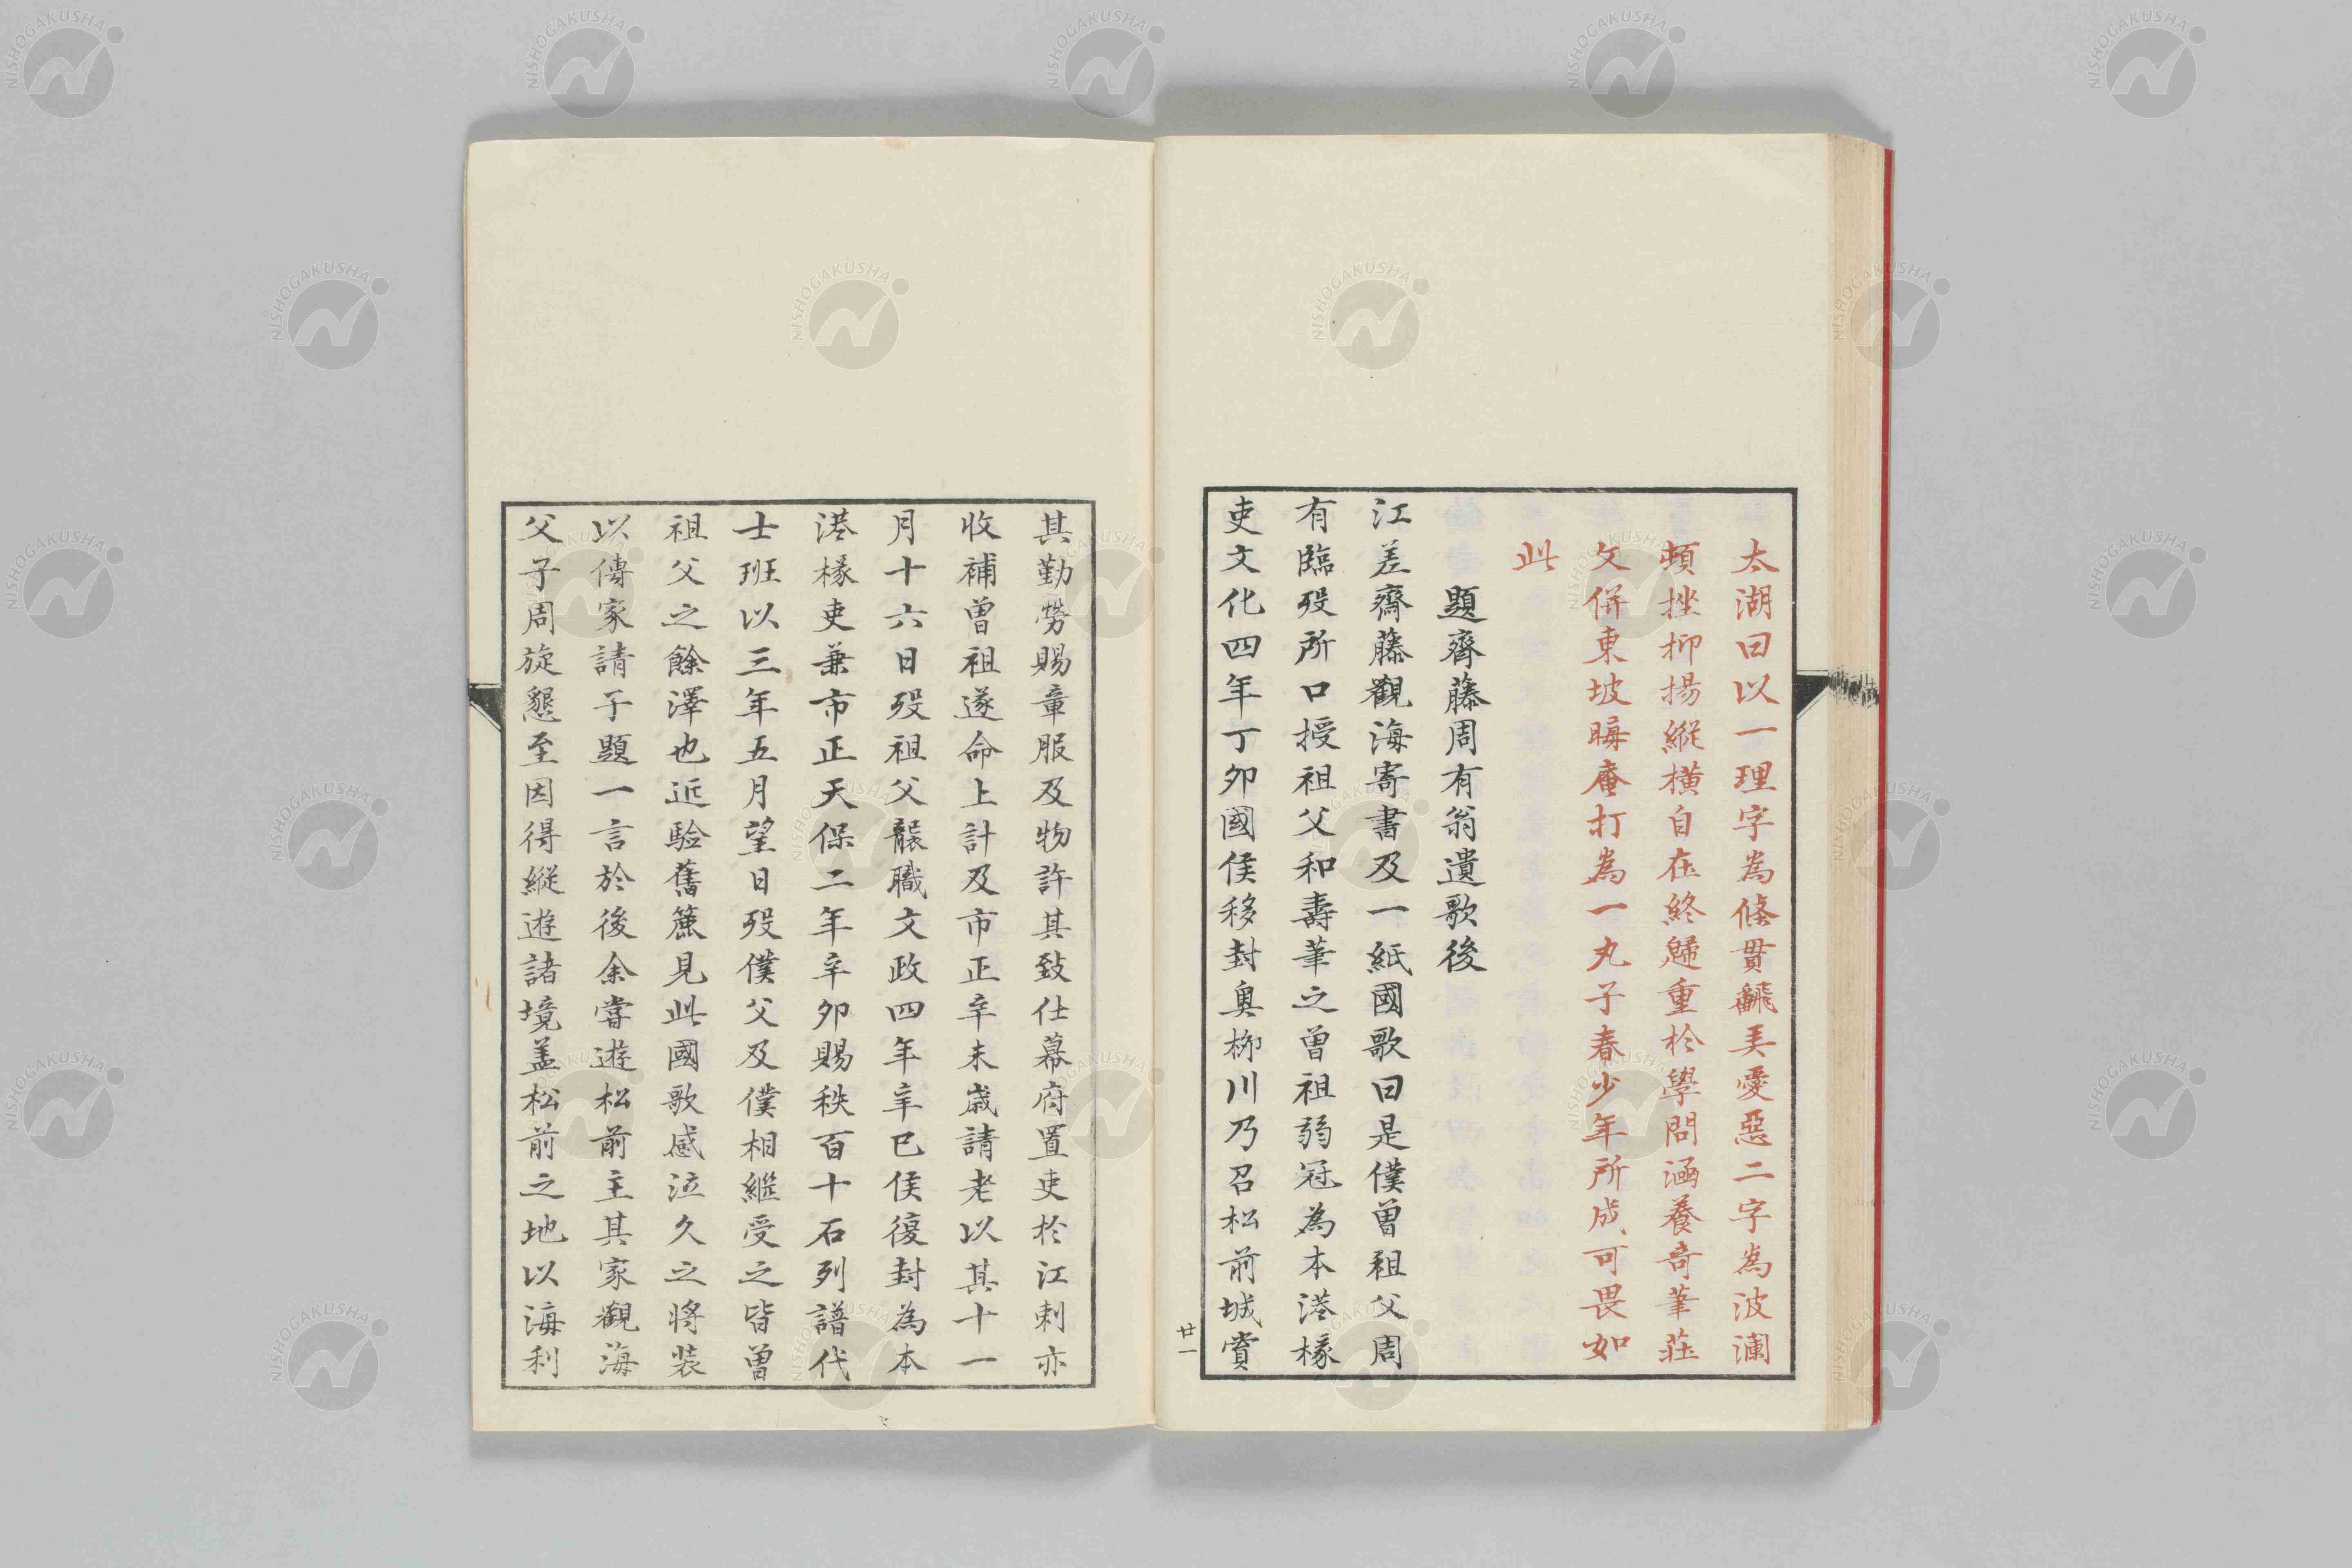 太湖曰以一理字為條貫飜美愛惡二字為波瀾
頓挫抑揚縱橫自在終歸重於學問涵養奇筆莊
文併東坡晦庵打為一丸子春少年所成可畏如
此
題齊藤周有翁遺歌後
江差齊藤觀海寄書及一紙國歌曰是僕曾祖父周
有臨歿所口授祖父和壽筆之曾祖弱冠為本港椽
吏文化四年丁卯國侯移封奧柳川乃召松前城賞
廿一
其勤勞賜章服及物許其致仕幕府置吏於江刺亦
收補曾祖遂命上計及市正辛未歲請老以其十一
月十六日歿祖父襲職文政四年辛巳侯復封為本
港椽吏兼市正天保二年辛卯賜秩百十石列譜代
士班以三年五月望日歿僕父及僕相繼受之皆曾
祖父之餘澤也近驗舊簏見此國歌感泣久之將裝
以傳家請子題一言於後余嘗遊松前主其家觀海
父子周旋懇至因得縱遊諸境蓋松前之地以海利
NISHOGAKUSHA